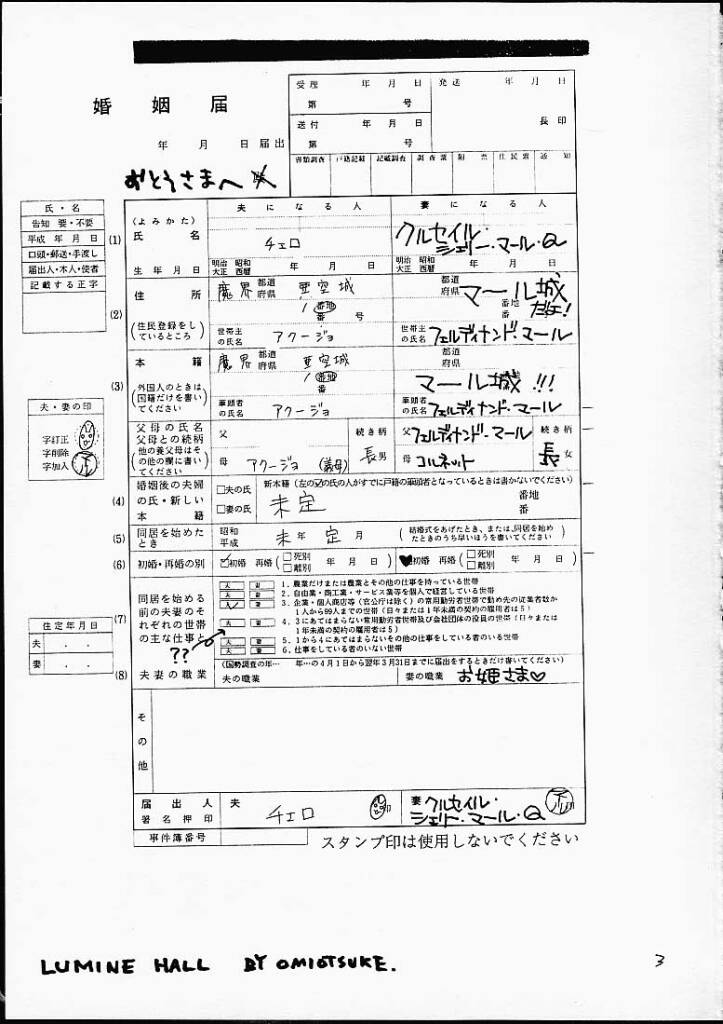 婚姻届
年 月 日 届出
受理 年 月 日
第 号
発送 年 月 日
送付 年 月 日
第 号
長印
書類調査 戸籍記載 記載調査 調査票 附票 住民票 通知
おとうさまへ
氏・名
告知 要・不要
平成 年 月 日
口頭・郵送・手渡し
届出人・本人・使者
記載する正字
夫になる人 妻になる人
(1)
(よみかた)
氏名
チェロ
クルセイル・
シェリー・マール・Q
生年月日
明治 昭和
大正 西暦
年 月 日
明治 昭和
大正 西暦
年 月 日
(2)
住所
(住民登録をしているところ)
魔界 都道府県 亜空城
1 番地
番 号
世帯主の氏名 アクージョ
都道府県 マール城
番地
番
だよ!
世帯主の氏名 フェルディナンド・マール
(3)
本籍
(外国人のときは国籍だけを書いてください)
魔界 都道府県 亜空城
1 番地
番
筆頭者の氏名 アクージョ
都道府県
マール城!!!
筆頭者の氏名 フェルディナンド・マール
夫・妻の印
字訂正
字削除
字加入
父母の氏名
父母との続柄
(他の養父母はその他の欄に書いてください)
父
母 アクージョ (義母)
続き柄
長男
父 フェルディナンド・マール
母 コルネット
続き柄
長女
(4)
婚姻後の夫婦の氏・新しい本籍
□夫の氏
□妻の氏
新本籍(左の☑の氏の人がすでに戸籍の筆頭者となっているときは書かないでください)
未定
番地
番
(5)
同居を始めたとき
昭和
平成
未年 定月
(結婚式をあげたとき、または、同居を始めたときのうち早いほうを書いてください)
(6)
初婚・再婚の別
☑初婚 再婚(□死別 □離別 年 月 日)
♥初婚 再婚(□死別 □離別 年 月 日)
(7)
同居を始める前の夫妻のそれぞれの世帯の主な仕事と
??
夫 妻 1. 農業だけまたは農業とその他の仕事を持っている世帯
夫 妻 2. 自由業・商工業・サービス業等を個人で経営している世帯
夫 妻 3. 企業・個人商店等(官公庁は除く)の常用勤労者世帯で勤め先の従業者数が1人から99人までの世帯(日々または1年未満の契約の雇用者は5)
夫 妻 4. 3にあてはまらない常用勤労者世帯及び会社団体の役員の世帯(日々または1年未満の契約の雇用者は5)
夫 妻 5. 1から4にあてはまらないその他の仕事をしている者のいる世帯
夫 妻 6. 仕事をしている者のいない世帯
住定年月日
夫 . .
妻 . .
(8)
夫妻の職業
(国勢調査の年… 年…の4月1日から翌年3月31日までに届出をするときだけ書いてください)
夫の職業
妻の職業 お姫さま♡
その他
届出人
署名押印
夫 チェロ 印
妻 クルセイル・
シェリー・マール・Q 印
事件簿番号
スタンプ印は使用しないでください
LUMINE HALL BY OMIOTSUKE.
3